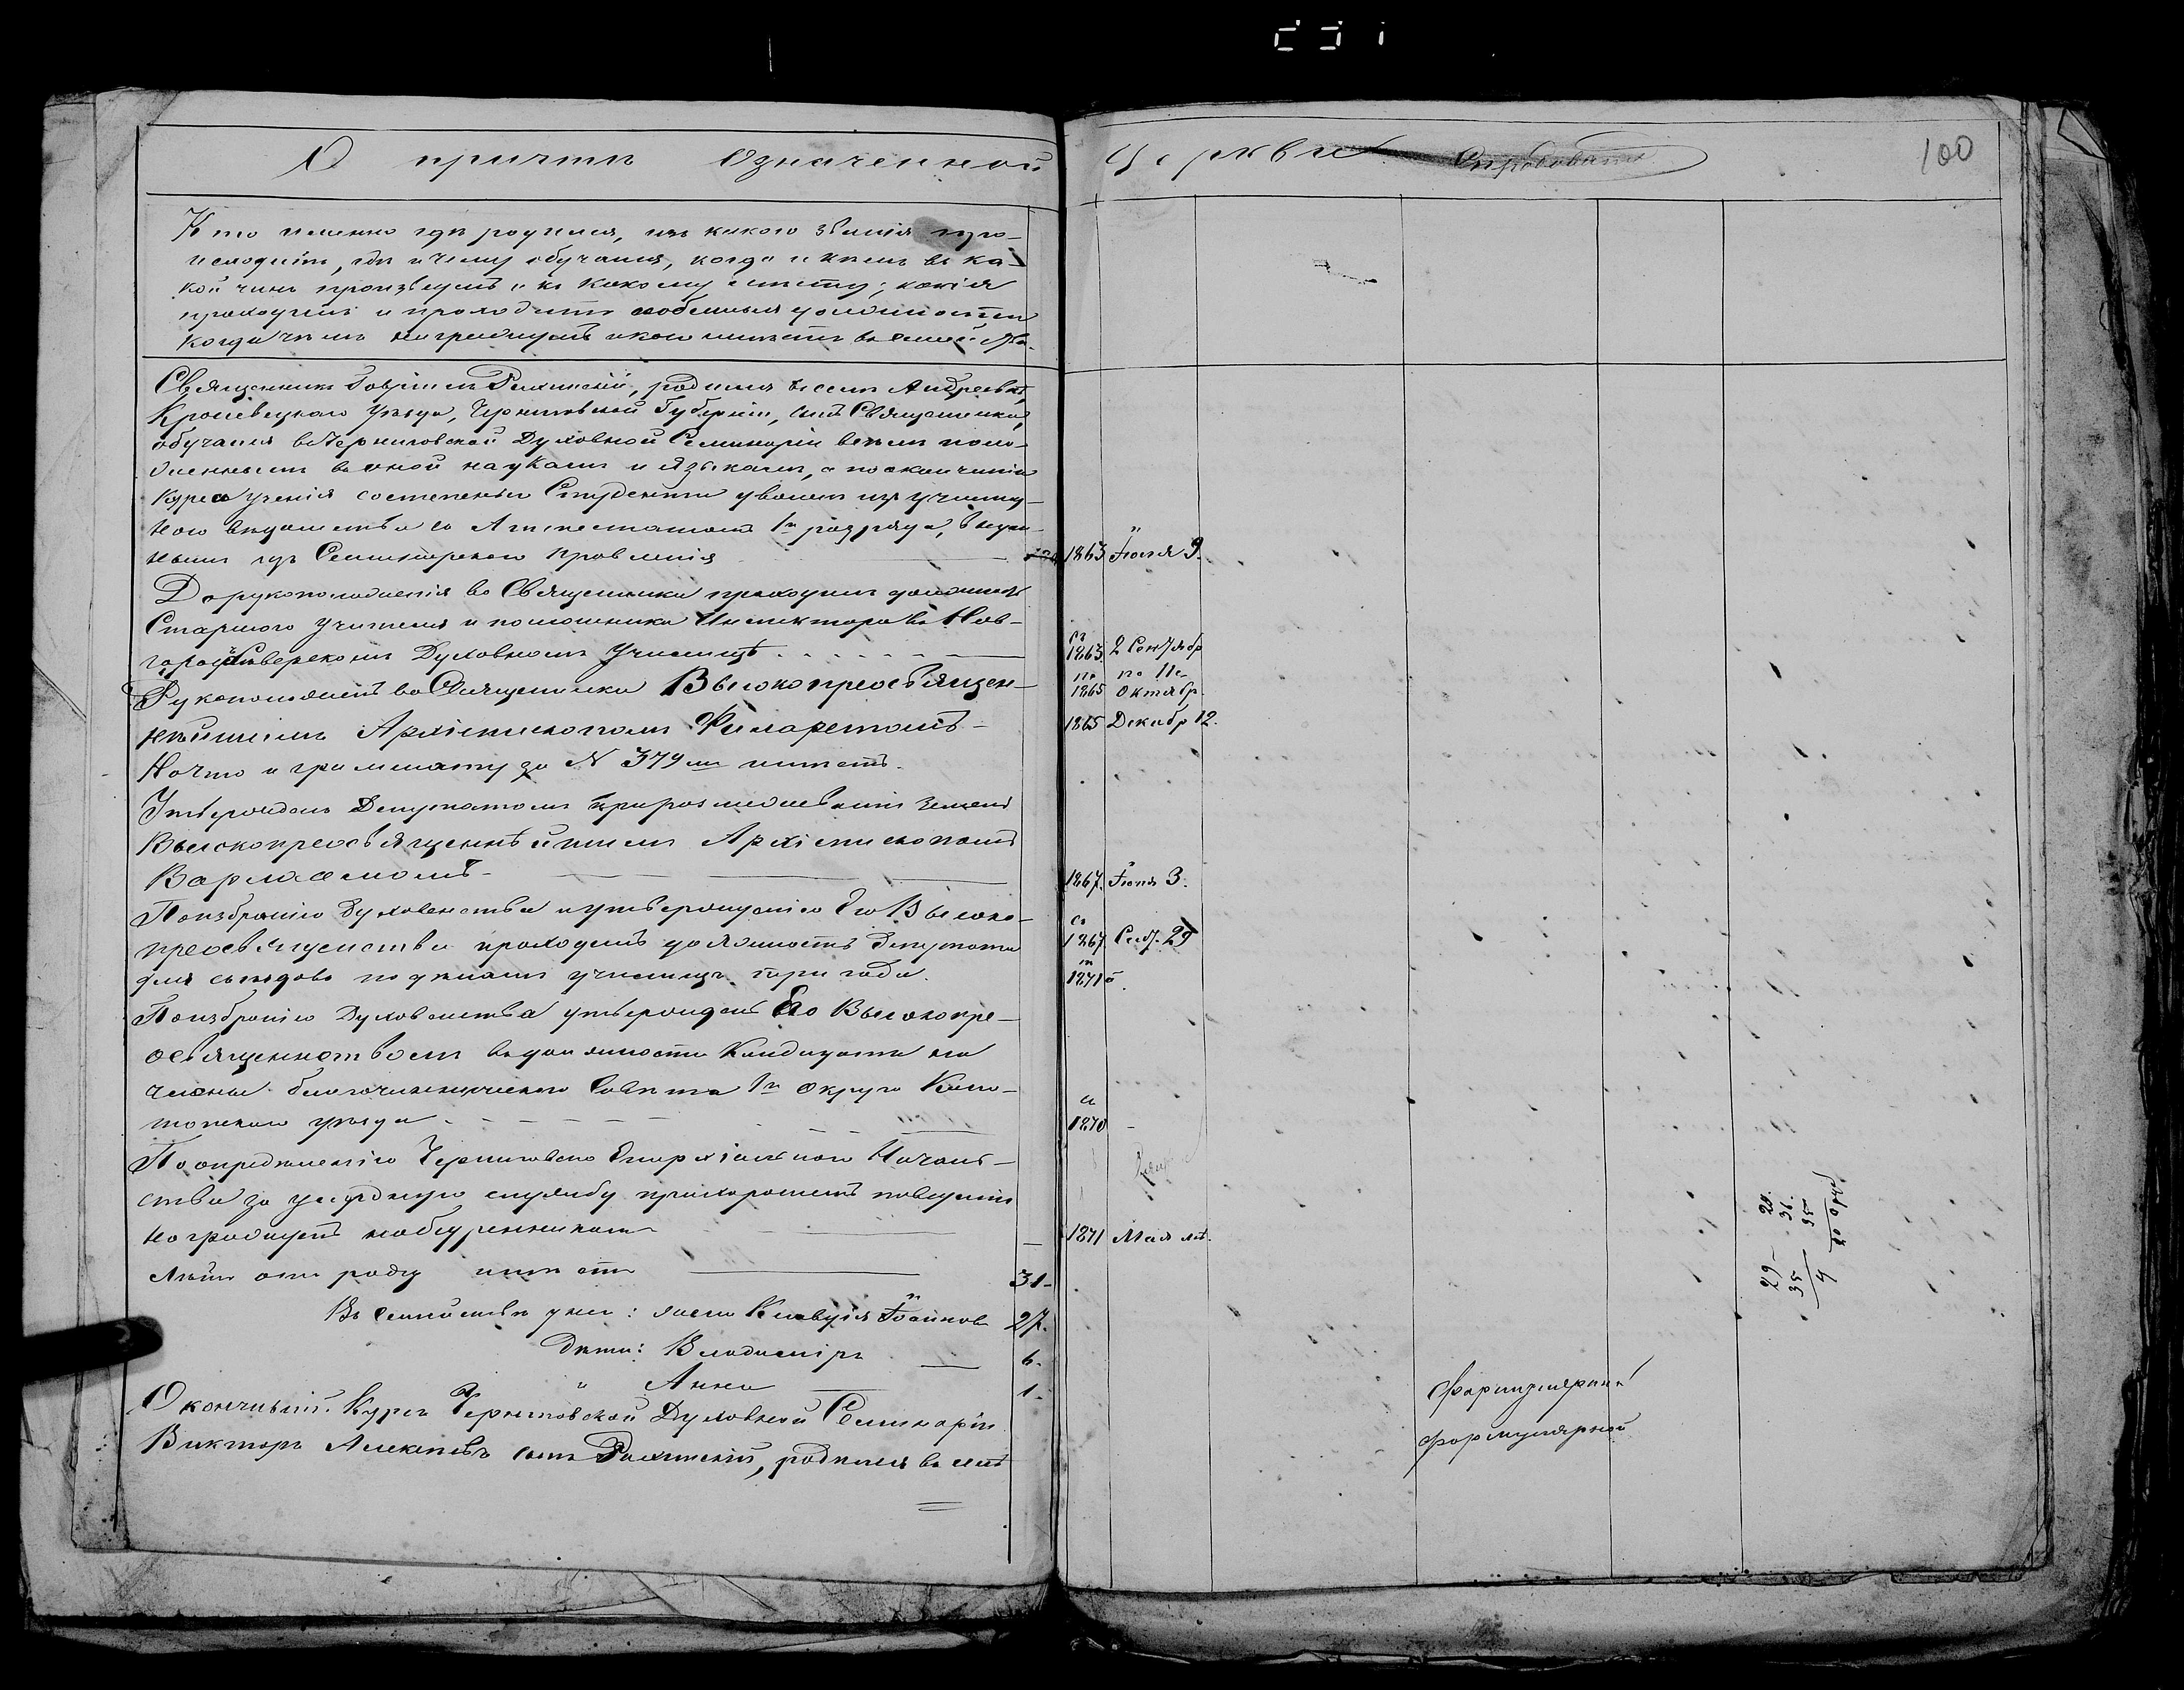 О причтѣ Означенной Церкви
100
Кто именно гдѣ родился, изъ какого званія про-
исходитъ, гдѣ и чему обучался, когда и кѣмъ въ ка-
кой чинъ произведенъ и къ какому мѣсту; какія
проходилъ и проходитъ особенныя должности
когда чѣмъ награжденъ и кого имѣетъ въ семействѣ.
Священникъ Гавріилъ родился въ селѣ Андреевкѣ,
Кролевецкаго уѣзда, Черниговской Губерніи, сынъ Священника,
обучался въ Черниговской Духовной Семинаріи всѣмъ поло-
женнымъ въ оной наукамъ и языкамъ, а по окончаніи
курса ученія со степенью Студента уволенъ изъ училищ-
наго вѣдомства съ Аттестатомъ 1го разряда, выдан-
нымъ изъ Семинарскаго Правленія 1863 Іюля 9.
До рукоположенія во Священника проходилъ должность
Старшаго Учителя и помошника Инспектора въ Нов-
городсѣверскомъ Духовномъ Училищѣ съ 1863 2 Сентябр
по 1865 по 11е Октябр.
Рукоположенъ во Священника Высокопреосвящен-
нѣйшимъ Архіепископомъ Филаретомъ 1865 Декабр 12.
На что и граммату за N 379 имѣетъ.
Утвержденъ Депутатомъ при размежеваніи земель
Высокопреосвященнѣйшимъ Архіепископомъ
Варлаамомъ 1867. Іюня 3.
По избранію Духовенства и утвержденію Его Высоко-
преосвященства проходилъ должность Депутата съ 1867 29
для съѣздовъ по дѣламъ училищъ три года. 1871
По избранію Духовенства утвержденъ Его Высокопре-
освященствомъ въ должности Кандидата на
члена благочинническаго Совѣта 1го округа Коно-
топскаго уѣзда 1870
По опредѣленію Черниговско Епархіальнаго Началь-
ства за усердную службу при хорошемъ поведеніи
награжденъ набедренникомъ 1871 Мая
Лѣтъ отъ роду имѣетъ 31
Въ семействѣ у него: жена Клавдія Іоаннов 27.
Дѣти: Владиміръ 6.
" Анна 1.
Окончившій Курсъ Черниговской Духовной Семинаріи
Викторъ Алексѣевъ сынъ родился въ селѣ
28.
36.
35
29
35
4
формулярный
формулярной